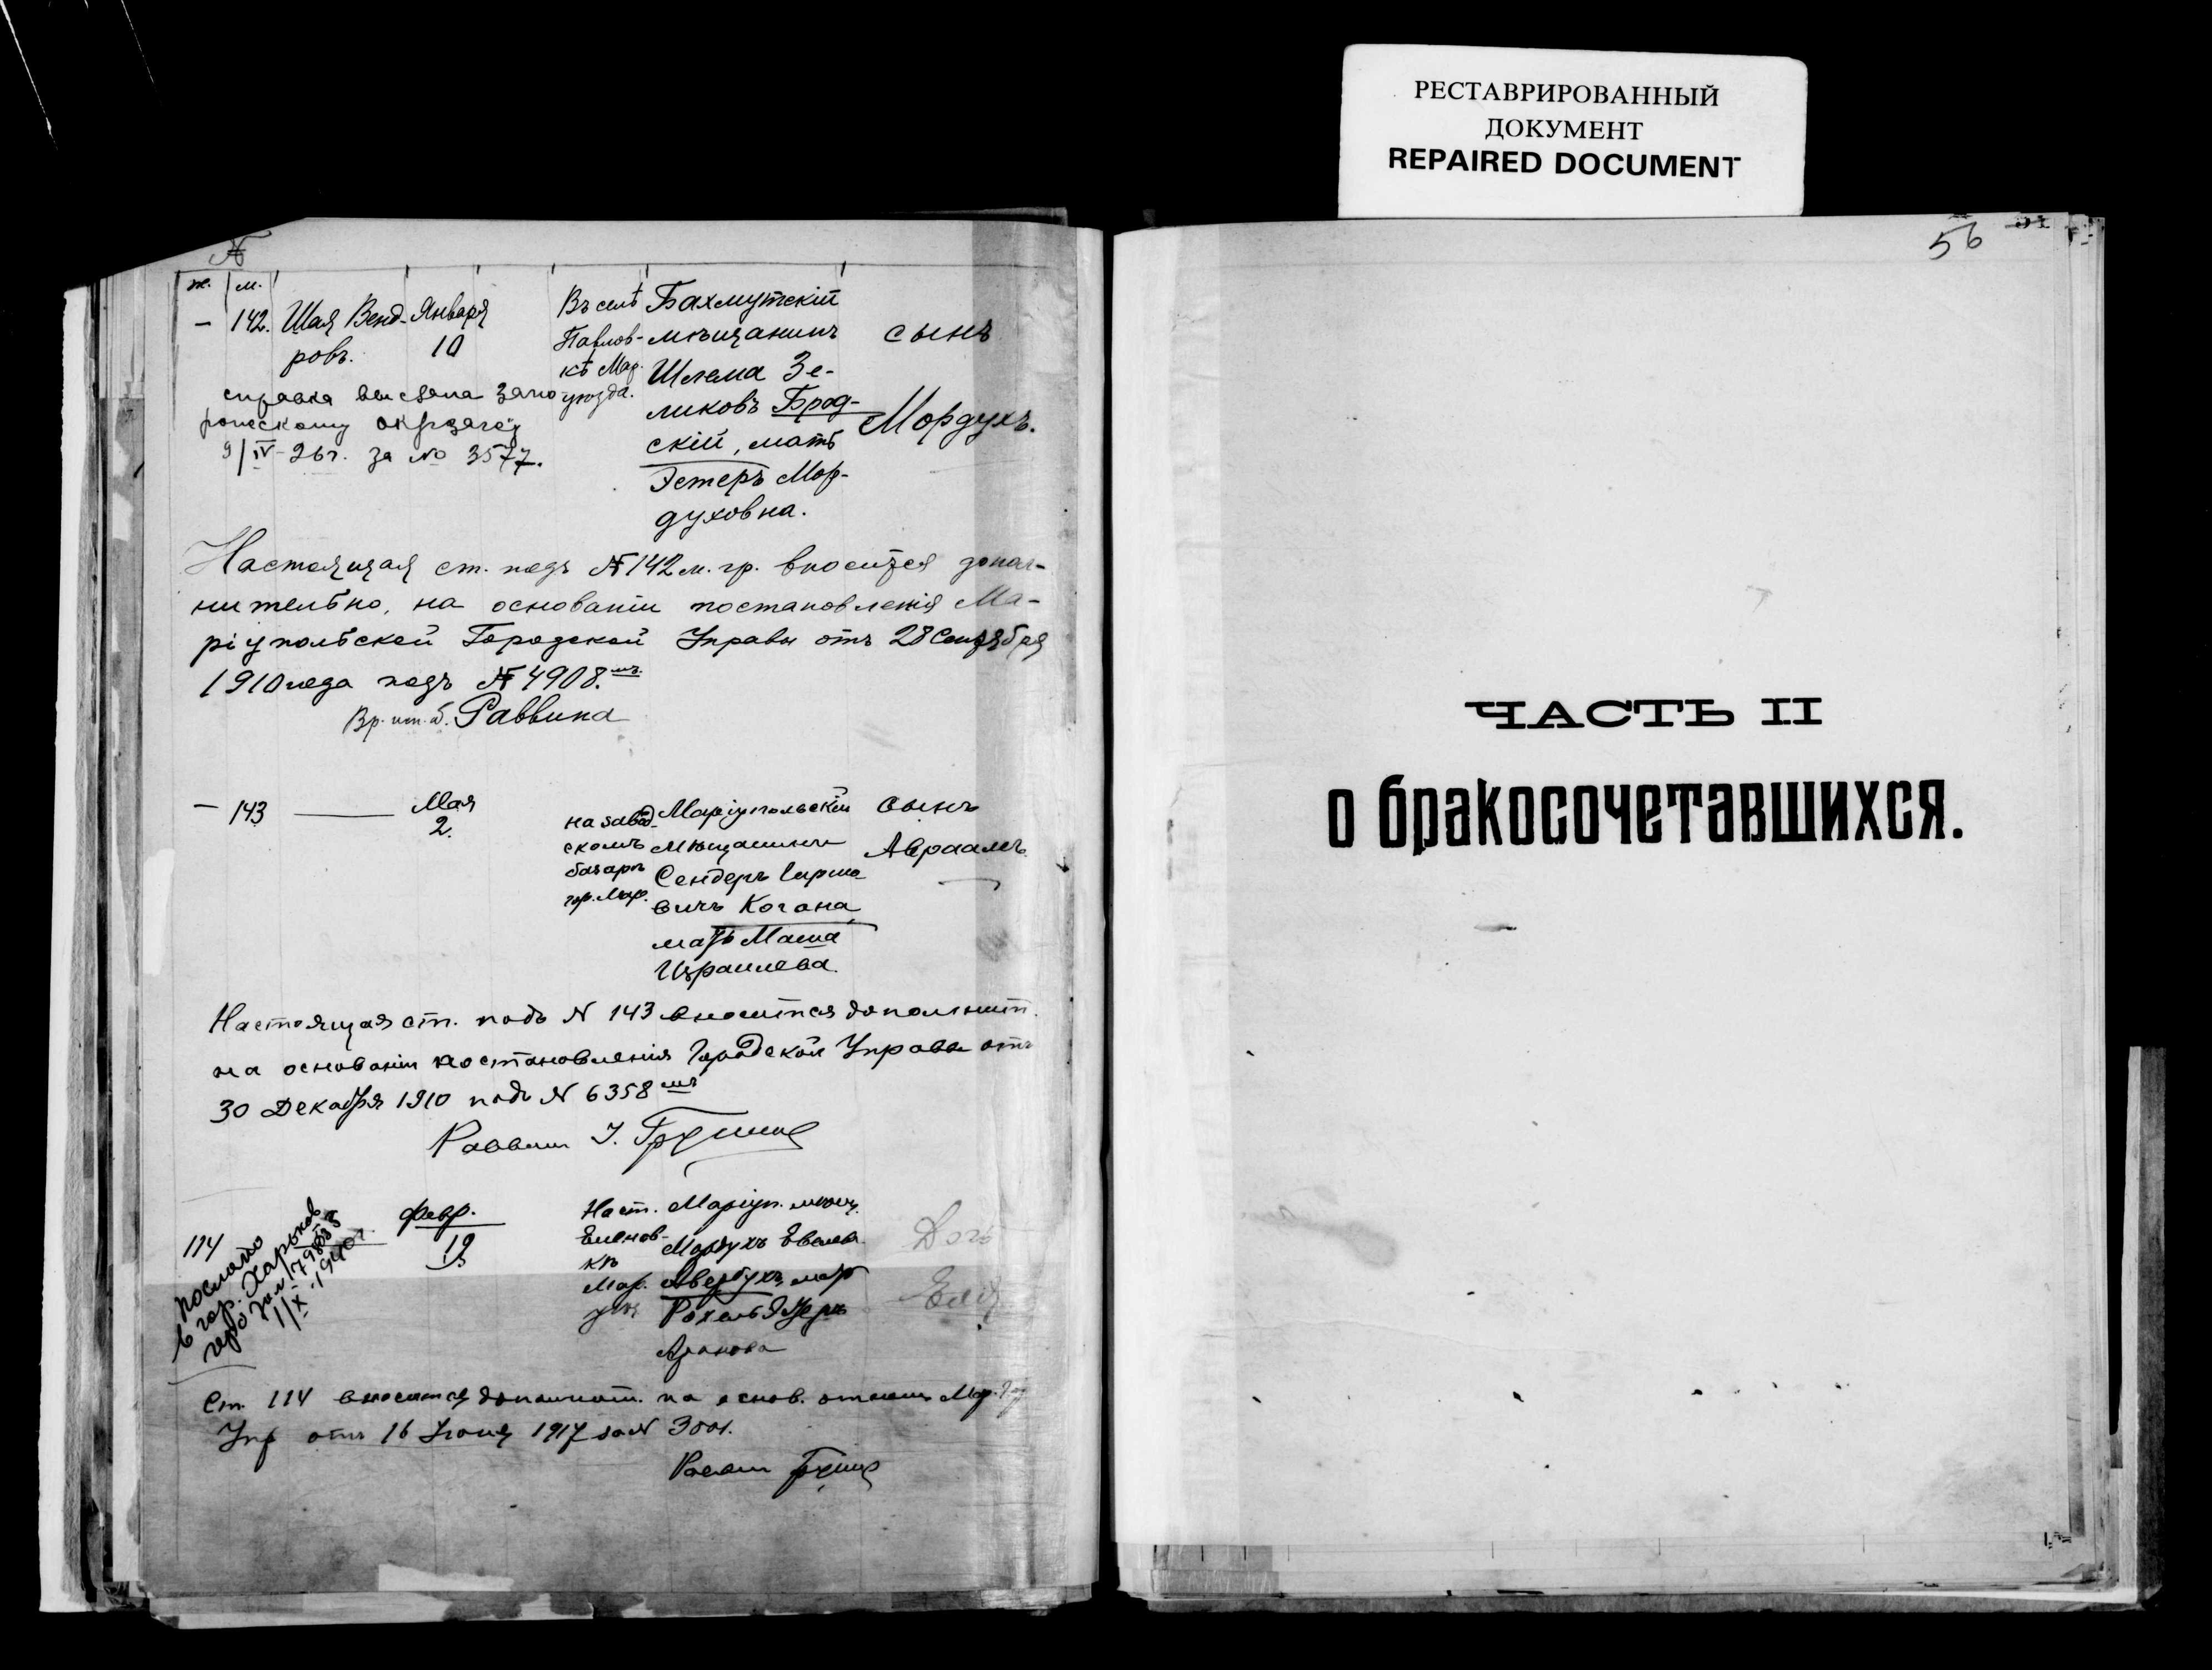 РЕСТАВРИРОВАННЫЙ
ДОКУМЕНТ
REPAIRED DOCUMENT
56
№
ж. м.
– 142. Шая Венд-
ровъ.
Января
10
Въ селѣ
Павлов-
кѣ Мар.
уѣзда.
Бахмутскій
мѣщанинъ
Шлема Зе-
ликовъ Брод-
скій, мать
Эстеръ Мор-
духовна.
сынъ
Мордухъ.
справка выслана Запо
рожскому
9/IV-26г. за № 3577.
Настоящая ст. подъ № 142 м. гр. вносится допол-
нительно, на основаніи постановленія Ма-
ріупольской Городской Управы отъ 28 Сентября
1910 года подъ № 4908.
Раввина
– 143
Мая
2.
на завод-
скомъ
базарѣ
гор. Мар.
Маріупольскій
мѣщанинъ
Сендеръ Гирше-
вичъ Когана,
мать Маша
Израилева.
сынъ
Авраамъ
Настоящая ст. подъ № 143 вносится дополнит.
на основаніи постановленія Городской Управы отъ
30 Декабря 1910 подъ № 6358
Раввин
114
послано
в гор. Харьков
1/X 1940г.
Февр.
Наст.
Еленов-
кѣ
Мар.
уѣз.
Маріуп. мѣщ.
Мордухъ
Авербухъ, мать
Рохель
Аронова
Дочь
Ст. 114 вносится дополнит. на основ. отнош. Мар.
Упр отъ 16 Іюня 1917 за №
Раввин
ЧАСТЬ II
о бракосочетавшихся.